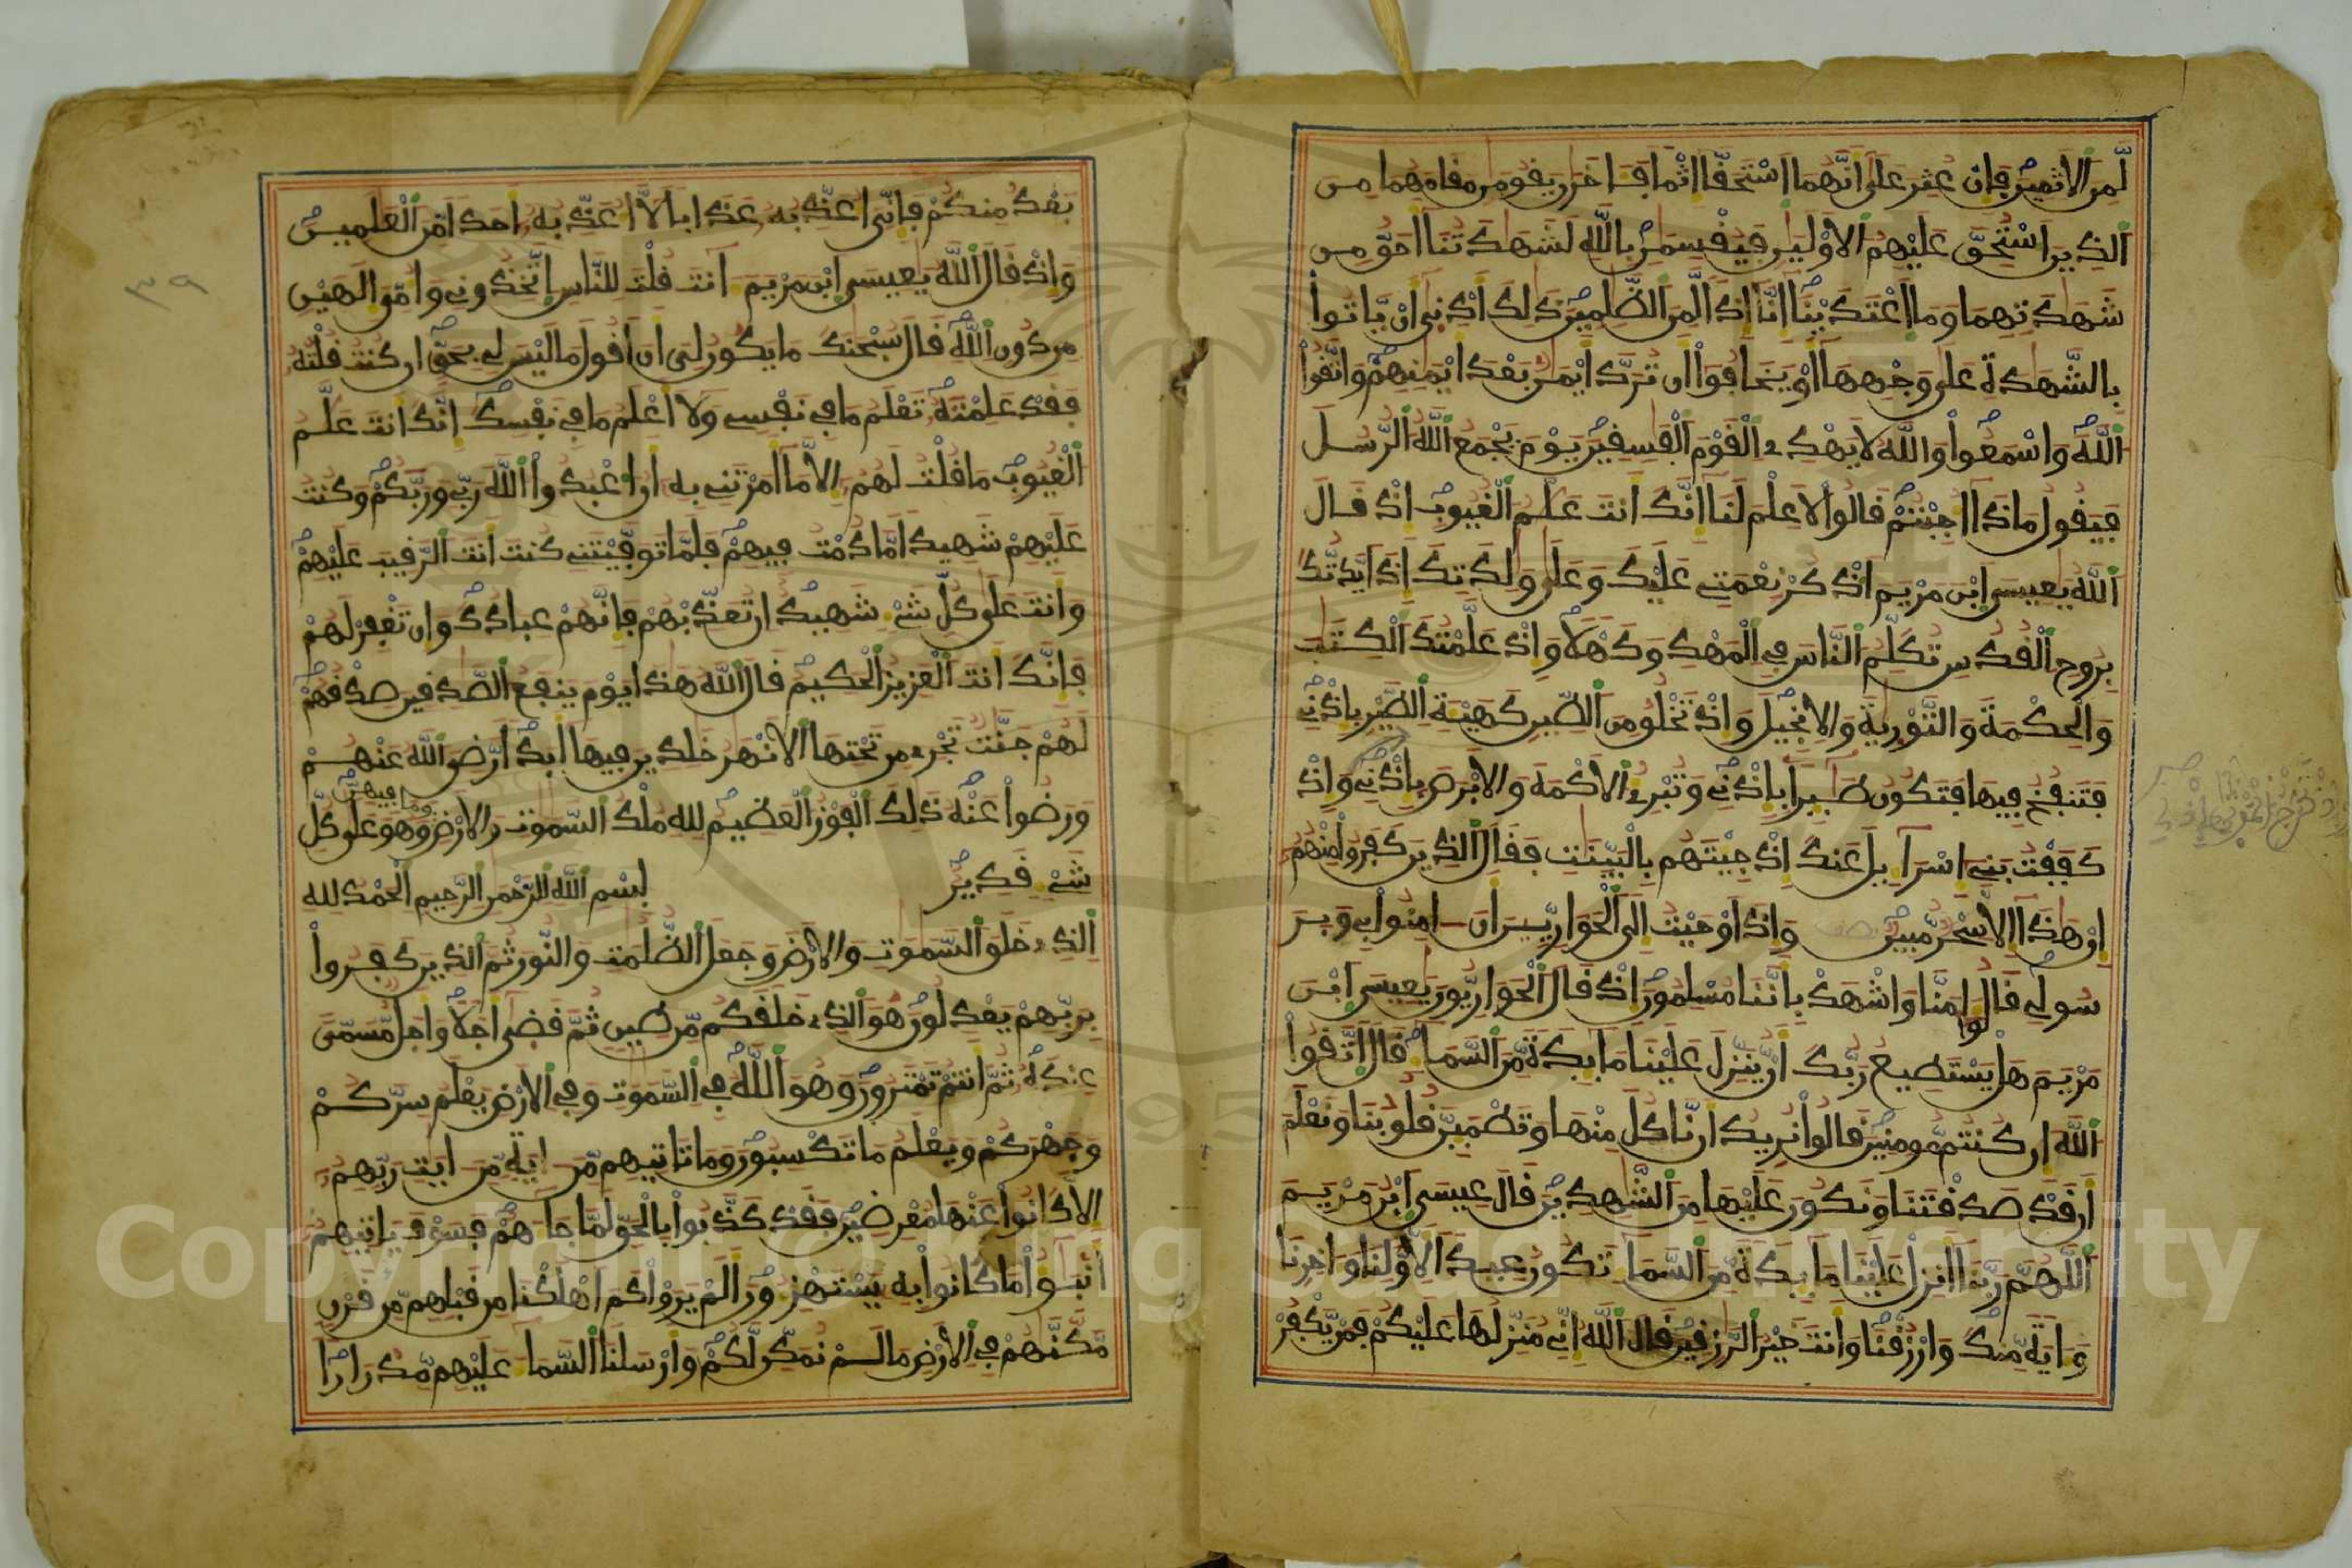 لَّمِنَ الاَثِمِينَ فَإِنْ عُثِرَ عَلَىٰ أَنَّهُمَا اَسْتَحَقَّا إِثْمًا فَـَٔاخَرَٰنِ يَقُومَٰنِ مَقَامَهُمَا مِنَ
ٱلذِينَ اَسْتُحِقَّ عَلَيْهِمُ الاَوْلَيَٰنِ فَيُقْسِمَٰنِ بِاللَّهِ لَشَهَٰدَتُنَا أَحَقُّ مِن
شَهَٰدَتِهِمَا وَمَا اَعْتَدَيْنَا إِنَّا إِذًا لَّمِنَ الظَّٰلِمِينَ ذَٰلِكَ أَدْنَىٰ أَنْ يَّاتُوا
بِالشَّهَٰدَةِ عَلَىٰ وَجْهِهَا أَوْ يَخَافُوا أَن تُرَدَّ أَيْمَٰنٌ بَعْدَ أَيْمَٰنِهِمْ وَاتَّقُوا
اللَّهَ وَاسْمَعُوا وَاللَّهُ لَا يَهْدِي الْقَوْمَ الْفَٰسِقِينَ يَوْمَ يَجْمَعُ اللَّهُ الرُّسُلَ
فَيَقُولُ مَاذَا أُجِبْتُمْ قَالُوا لَا عِلْمَ لَنَا إِنَّكَ أَنتَ عَلَّٰمُ الْغُيُوبِ إِذْ قَالَ
اللَّهُ يَٰعِيسَى ابْنَ مَرْيَمَ اَذْكُرْ نِعْمَتِي عَلَيْكَ وَعَلَىٰ وَٰلِدَتِكَ إِذَ اَيَّدتُّكَ
بِرُوحِ الْقُدُسِ تُكَلِّمُ النَّاسَ فِي الْمَهْدِ وَكَهْلًا وَإِذْ عَلَّمْتُكَ الْكِتَٰبَ
وَالْحِكْمَةَ وَالتَّوْرَىٰةَ وَالاِنجِيلَ وَإِذْ تَخْلُقُ مِنَ الطِّينِ كَهَيْـَٔةِ الطَّيْرِ بِإِذْنِي
فَتَنفُخُ فِيهَا فَتَكُونُ طَٰٓئِرًا بِإِذْنِي وَتُبْرِئُ الاَكْمَهَ وَالاَبْرَصَ بِإِذْنِي وَإِذْ
كَفَفْتُ بَنِي إِسْرَآءِيلَ عَنكَ إِذْ جِئْتَهُم بِالْبَيِّنَٰتِ فَقَالَ الذِينَ كَفَرُوا مِنْهُمُ
إِنْ هَٰذَا إِلَّا سِحْرٌ مُّبِينٌ وَإِذَ اَوْحَيْتُ إِلَى الْحَوَارِيِّينَ أَنَ اٰمِنُوا بِي وَبِرَ
سُولِي قَالُوا ءَامَنَّا وَاشْهَدْ بِأَنَّنَا مُسْلِمُونَ إِذْ قَالَ الْحَوَارِيُّونَ يَٰعِيسَى ابْنَ
مَرْيَمَ هَلْ يَسْتَطِيعُ رَبُّكَ أَنْ يُّنَزِّلَ عَلَيْنَا مَآئِدَةً مِّنَ السَّمَآءِ قَالَ اَتَّقُوا
اللَّهَ إِن كُنتُم مُّومِنِينَ قَالُوا نُرِيدُ أَن نَّاكُلَ مِنْهَا وَتَطْمَئِنَّ قُلُوبُنَا وَنَعْلَمَ
أَن قَدْ صَدَقْتَنَا وَنَكُونَ عَلَيْهَا مِنَ الشَّٰهِدِينَ قَالَ عِيسَى ابْنُ مَرْيَمَ
اللَّهُمَّ رَبَّنَا أَنزِلْ عَلَيْنَا مَآئِدَةً مِّنَ السَّمَآءِ تَكُونُ عِيدًا لِّأَوَّلِنَا وَءَاخِرِنَا
وَءَايَةً مِّنكَ وَارْزُقْنَا وَأَنتَ خَيْرُ الرَّٰزِقِينَ قَالَ اللَّهُ إِنِّي مُنَزِّلُهَا عَلَيْكُمْ فَمَنْ يَّكْفُرْ
وَإِذْ تُخْرِجُ الْمَوْتَىٰ بِإِذْنِي
٣٩
بَعْدُ مِنكُمْ فَإِنِّي أُعَذِّبُهُ عَذَابًا لَّا أُعَذِّبُهُ أَحَدًا مِّنَ الْعَٰلَمِينَ
وَإِذْ قَالَ اللَّهُ يَٰعِيسَى ابْنَ مَرْيَمَ ءَآنتَ قُلْتَ لِلنَّاسِ اِتَّخِذُونِي وَأُمِّيَ إِلَٰهَيْنِ
مِن دُونِ اللَّهِ قَالَ سُبْحَٰنَكَ مَا يَكُونُ لِيَ أَنَ اَقُولَ مَا لَيْسَ لِي بِحَقٍّ إِن كُنتُ قُلْتُهُ
فَقَدْ عَلِمْتَهُ تَعْلَمُ مَا فِي نَفْسِي وَلَا أَعْلَمُ مَا فِي نَفْسِكَ إِنَّكَ أَنتَ عَلَّٰمُ
الْغُيُوبِ مَا قُلْتُ لَهُمُ إِلَّا مَا أَمَرْتَنِي بِهِ أَنُ اعْبُدُوا اللَّهَ رَبِّي وَرَبَّكُمْ وَكُنتُ
عَلَيْهِمْ شَهِيدًا مَّا دُمْتُ فِيهِمْ فَلَمَّا تَوَفَّيْتَنِي كُنتَ أَنتَ الرَّقِيبَ عَلَيْهِمْ
وَأَنتَ عَلَىٰ كُلِّ شَيْءٍ شَهِيدٌ إِن تُعَذِّبْهُمْ فَإِنَّهُمْ عِبَادُكَ وَإِن تَغْفِرْ لَهُمْ
فَإِنَّكَ أَنتَ الْعَزِيزُ الْحَكِيمُ قَالَ اللَّهُ هَٰذَا يَوْمَ يَنفَعُ الصَّٰدِقِينَ صِدْقُهُمْ
لَهُمْ جَنَّٰتٌ تَجْرِي مِن تَحْتِهَا الاَنْهَٰرُ خَٰلِدِينَ فِيهَا أَبَدًا رَّضِيَ اللَّهُ عَنْهُمْ
وَرَضُوا عَنْهُ ذَٰلِكَ الْفَوْزُ الْعَظِيمُ لِلَّهِ مُلْكُ السَّمَٰوَٰتِ وَالاَرْضِ وَمَا فِيهِنَّ وَهُوَ عَلَىٰ كُلِّ
شَيْءٍ قَدِيرٌ بِسْمِ اللَّهِ الرَّحْمَٰنِ الرَّحِيمِ الْحَمْدُ لِلَّهِ
الذِي خَلَقَ السَّمَٰوَٰتِ وَالاَرْضَ وَجَعَلَ الظُّلُمَٰتِ وَالنُّورَ ثُمَّ الذِينَ كَفَرُوا
بِرَبِّهِمْ يَعْدِلُونَ هُوَ الذِي خَلَقَكُم مِّن طِينٍ ثُمَّ قَضَىٰ أَجَلًا وَأَجَلٌ مُّسَمًّى
عِندَهُ ثُمَّ أَنتُمْ تَمْتَرُونَ وَهُوَ اللَّهُ فِي السَّمَٰوَٰتِ وَفِي الاَرْضِ يَعْلَمُ سِرَّكُمْ
وَجَهْرَكُمْ وَيَعْلَمُ مَا تَكْسِبُونَ وَمَا تَاتِيهِم مِّنَ اٰيَةٍ مِّنَ اٰيَٰتِ رَبِّهِمُ
إِلَّا كَانُوا عَنْهَا مُعْرِضِينَ فَقَدْ كَذَّبُوا بِالْحَقِّ لَمَّا جَآءَهُمْ فَسَوْفَ يَاتِيهِمُ
أَنۢبَٰٓؤُا مَا كَانُوا بِهِ يَسْتَهْزِءُونَ أَلَمْ يَرَوْا كَمَ اَهْلَكْنَا مِن قَبْلِهِم مِّن قَرْنٍ
مَّكَّنَّٰهُمْ فِي الاَرْضِ مَا لَمْ نُمَكِّن لَّكُمْ وَأَرْسَلْنَا السَّمَآءَ عَلَيْهِم مِّدْرَارًا
Copyright © King Saud University
1957